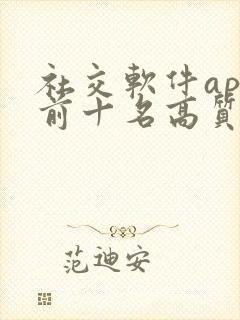 社交軟件ap
前十名高質
范迪安